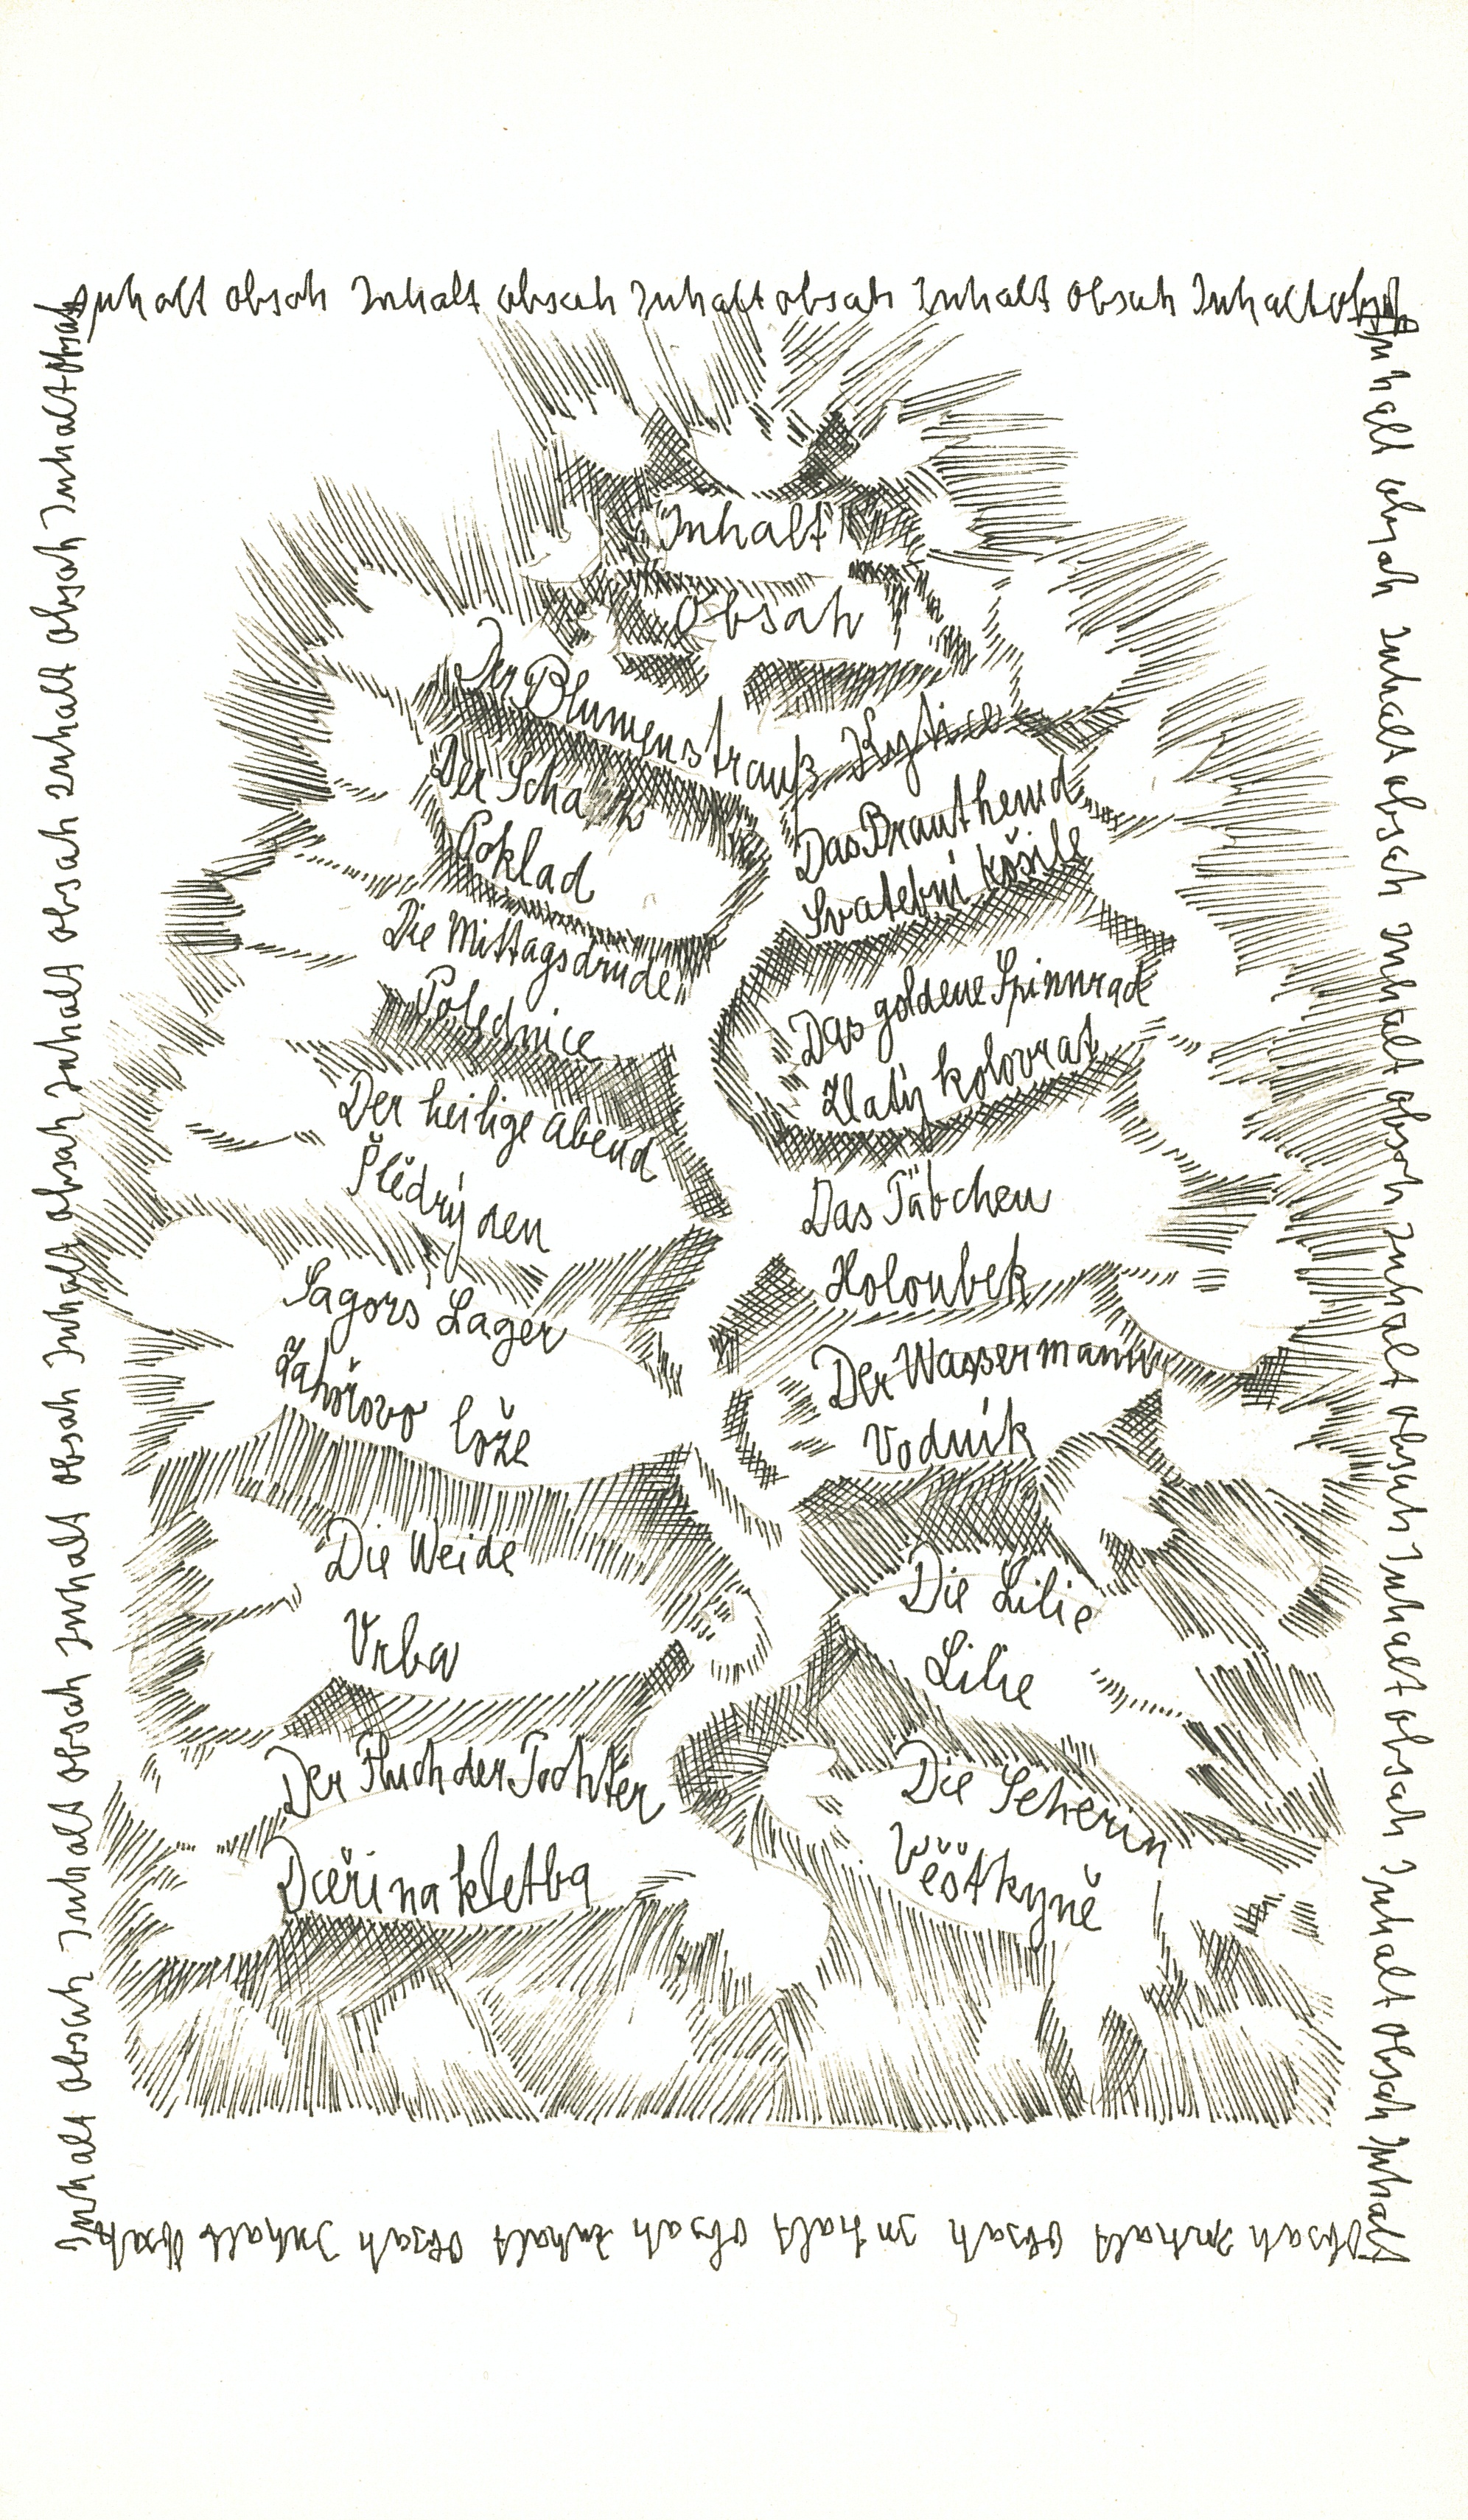 Inhalt obsah Inhalt obsah Inhalt obsah Inhalt obsah Inhalt obsah
Inhalt
Obsah
Der Blumenstrauß Kytice
Der Schatz
Poklad
Das Brauthemd
Svatební košile
Die Mittagsdrude
Polednice
Das goldene Spinnrad
Zlatý kolovrat
Der heilige abend
Štědrý den
Das Täbchen
Holoubek
Sagors Lager
Záhořovo lože
Der Wassermann
Vodník
Die Weide
Vrba
Die Lilie
Lilie
Der Fluch der Tochter
Dceřina kletba
Die Seherin
Věštkyně
Inhalt obsah Inhalt obsah Inhalt obsah Inhalt obsah Inhalt obsah Inhalt obsah Inhalt obsah Inhalt obsah Inhalt
Obsah Inhalt obsah Inhalt obsah Inhalt obsah Inhalt obsah Inhalt obsah
Inhalt obsah Inhalt obsah Inhalt obsah Inhalt obsah Inhalt obsah Inhalt obsah Inhalt obsah Inhalt obsah